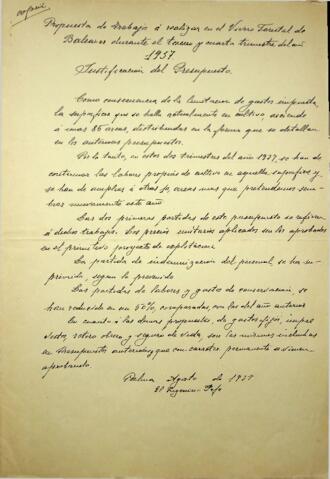 Propuesta de trabajo a realizar en el Vivero Forestal de
Baleares durante el tercero y cuarto trimestre del año
1937
Justificación del Presupuesto.
Como consecuencia de la limitacion de gastos impuesta,
la superficie que se halla actualmente en cultivo, asciende
a unas 85 areas, distribuidas en la forma que se detallan
en los anteriores presupuestos.
Por lo tanto, en estos dos trimestres del año 1937, se han de
continuar las labores propias de cultivo en aquella superficie y
se han de ampliar á otras areas mas que pretendemos sem-
brar nuevamente este año
Las dos primeras partidas de este presupuesto se refieren
á dichos trabajos. Los precios unitarios aplicados son los aprobados
en el primitivo proyecto de explotacion
La partida de indemnizacion del personal se ha su-
primido, segun lo prevenido
Las partidas de labores y gastos de conservacion se
han reducido en un 50%, comparadas con las del año anterior
En cuanto a las demas propuestas de gastos fijos, impre
vistos, retiro obrero y seguro de vida, son las mismas incluidas
en Presupuestos anteriores y que con caracter permanente se vienen
aprobando.
Palma Agosto de 1937
El Ingeniero Jefe